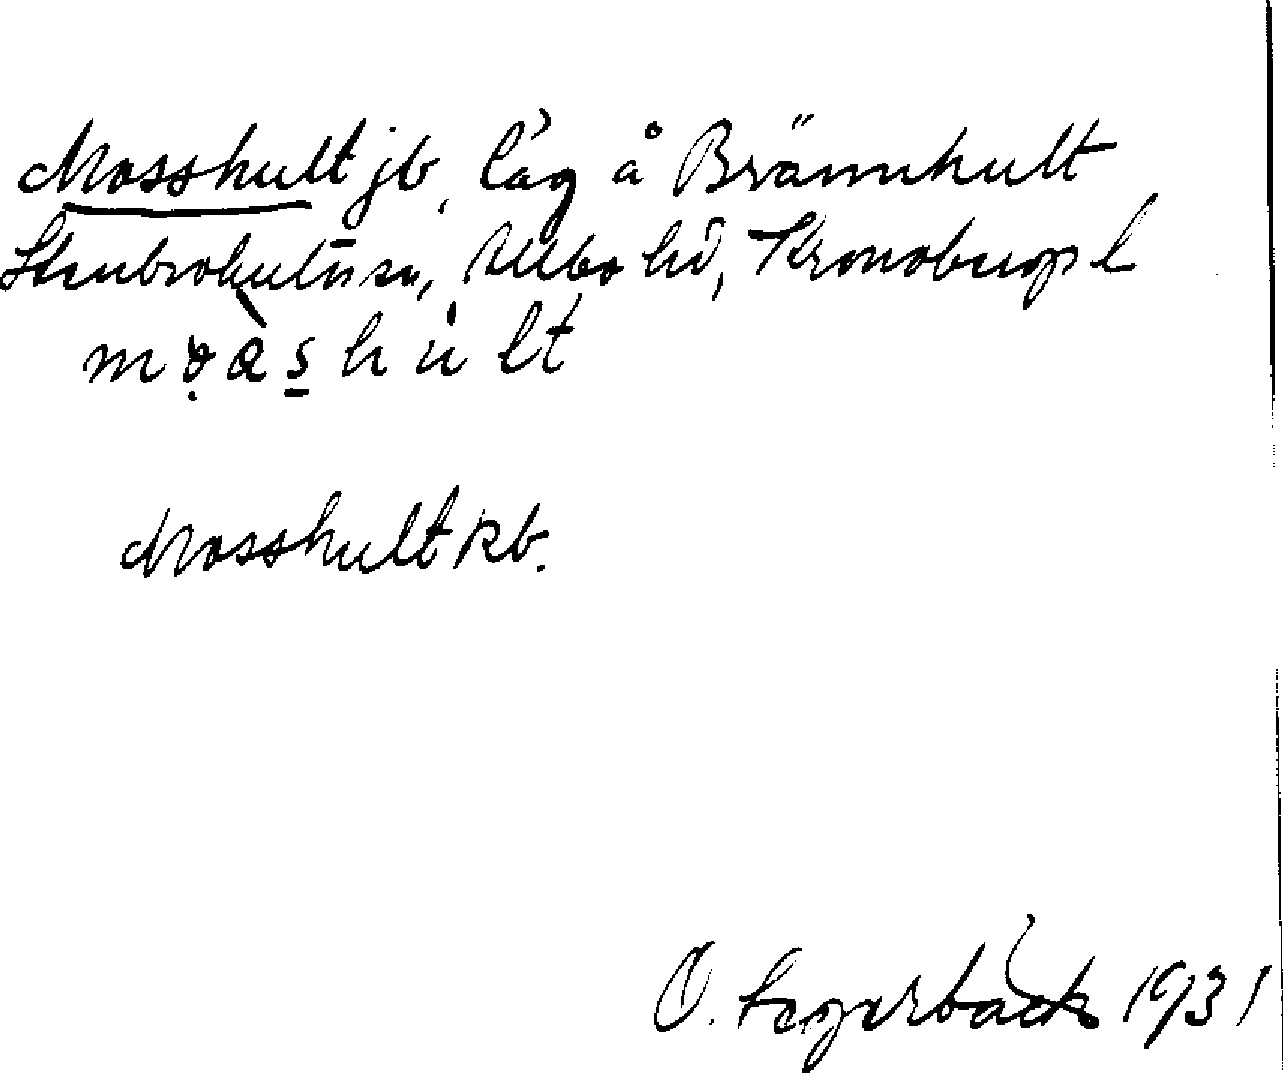 Mosshult jb, låg å Brännhult
Stenbrohults sn, Allbo hd, Kronobergs l
Mosshult kb.
O. Lagerbäck 1931